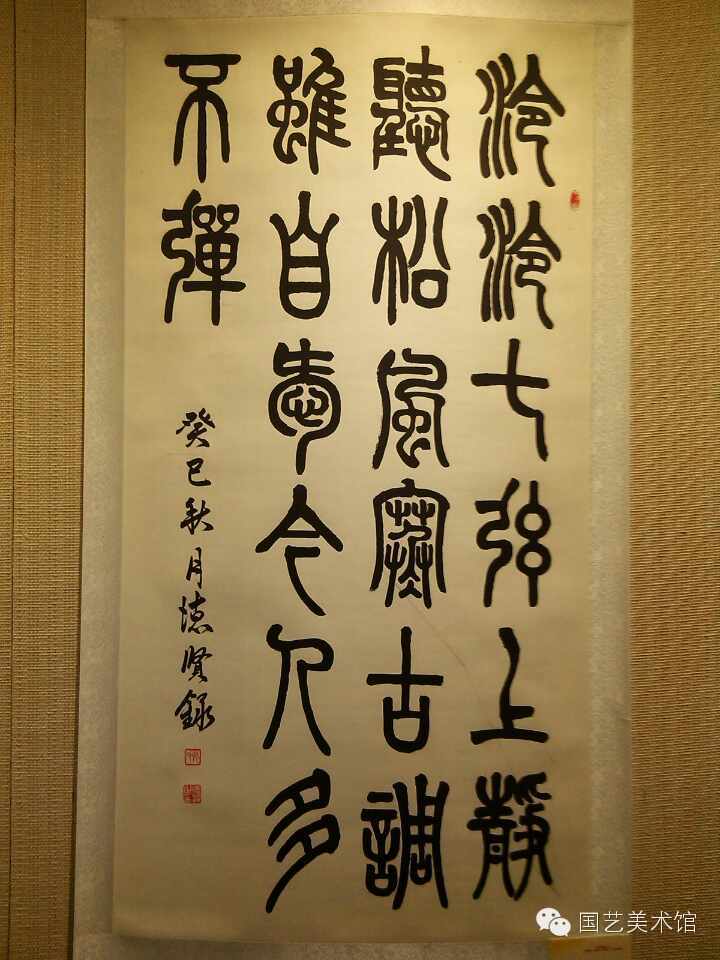 泠泠七弦上靜
聽松風寒古調
雖自愛今人多
不彈
癸巳秋月德賢錄
国艺美术馆